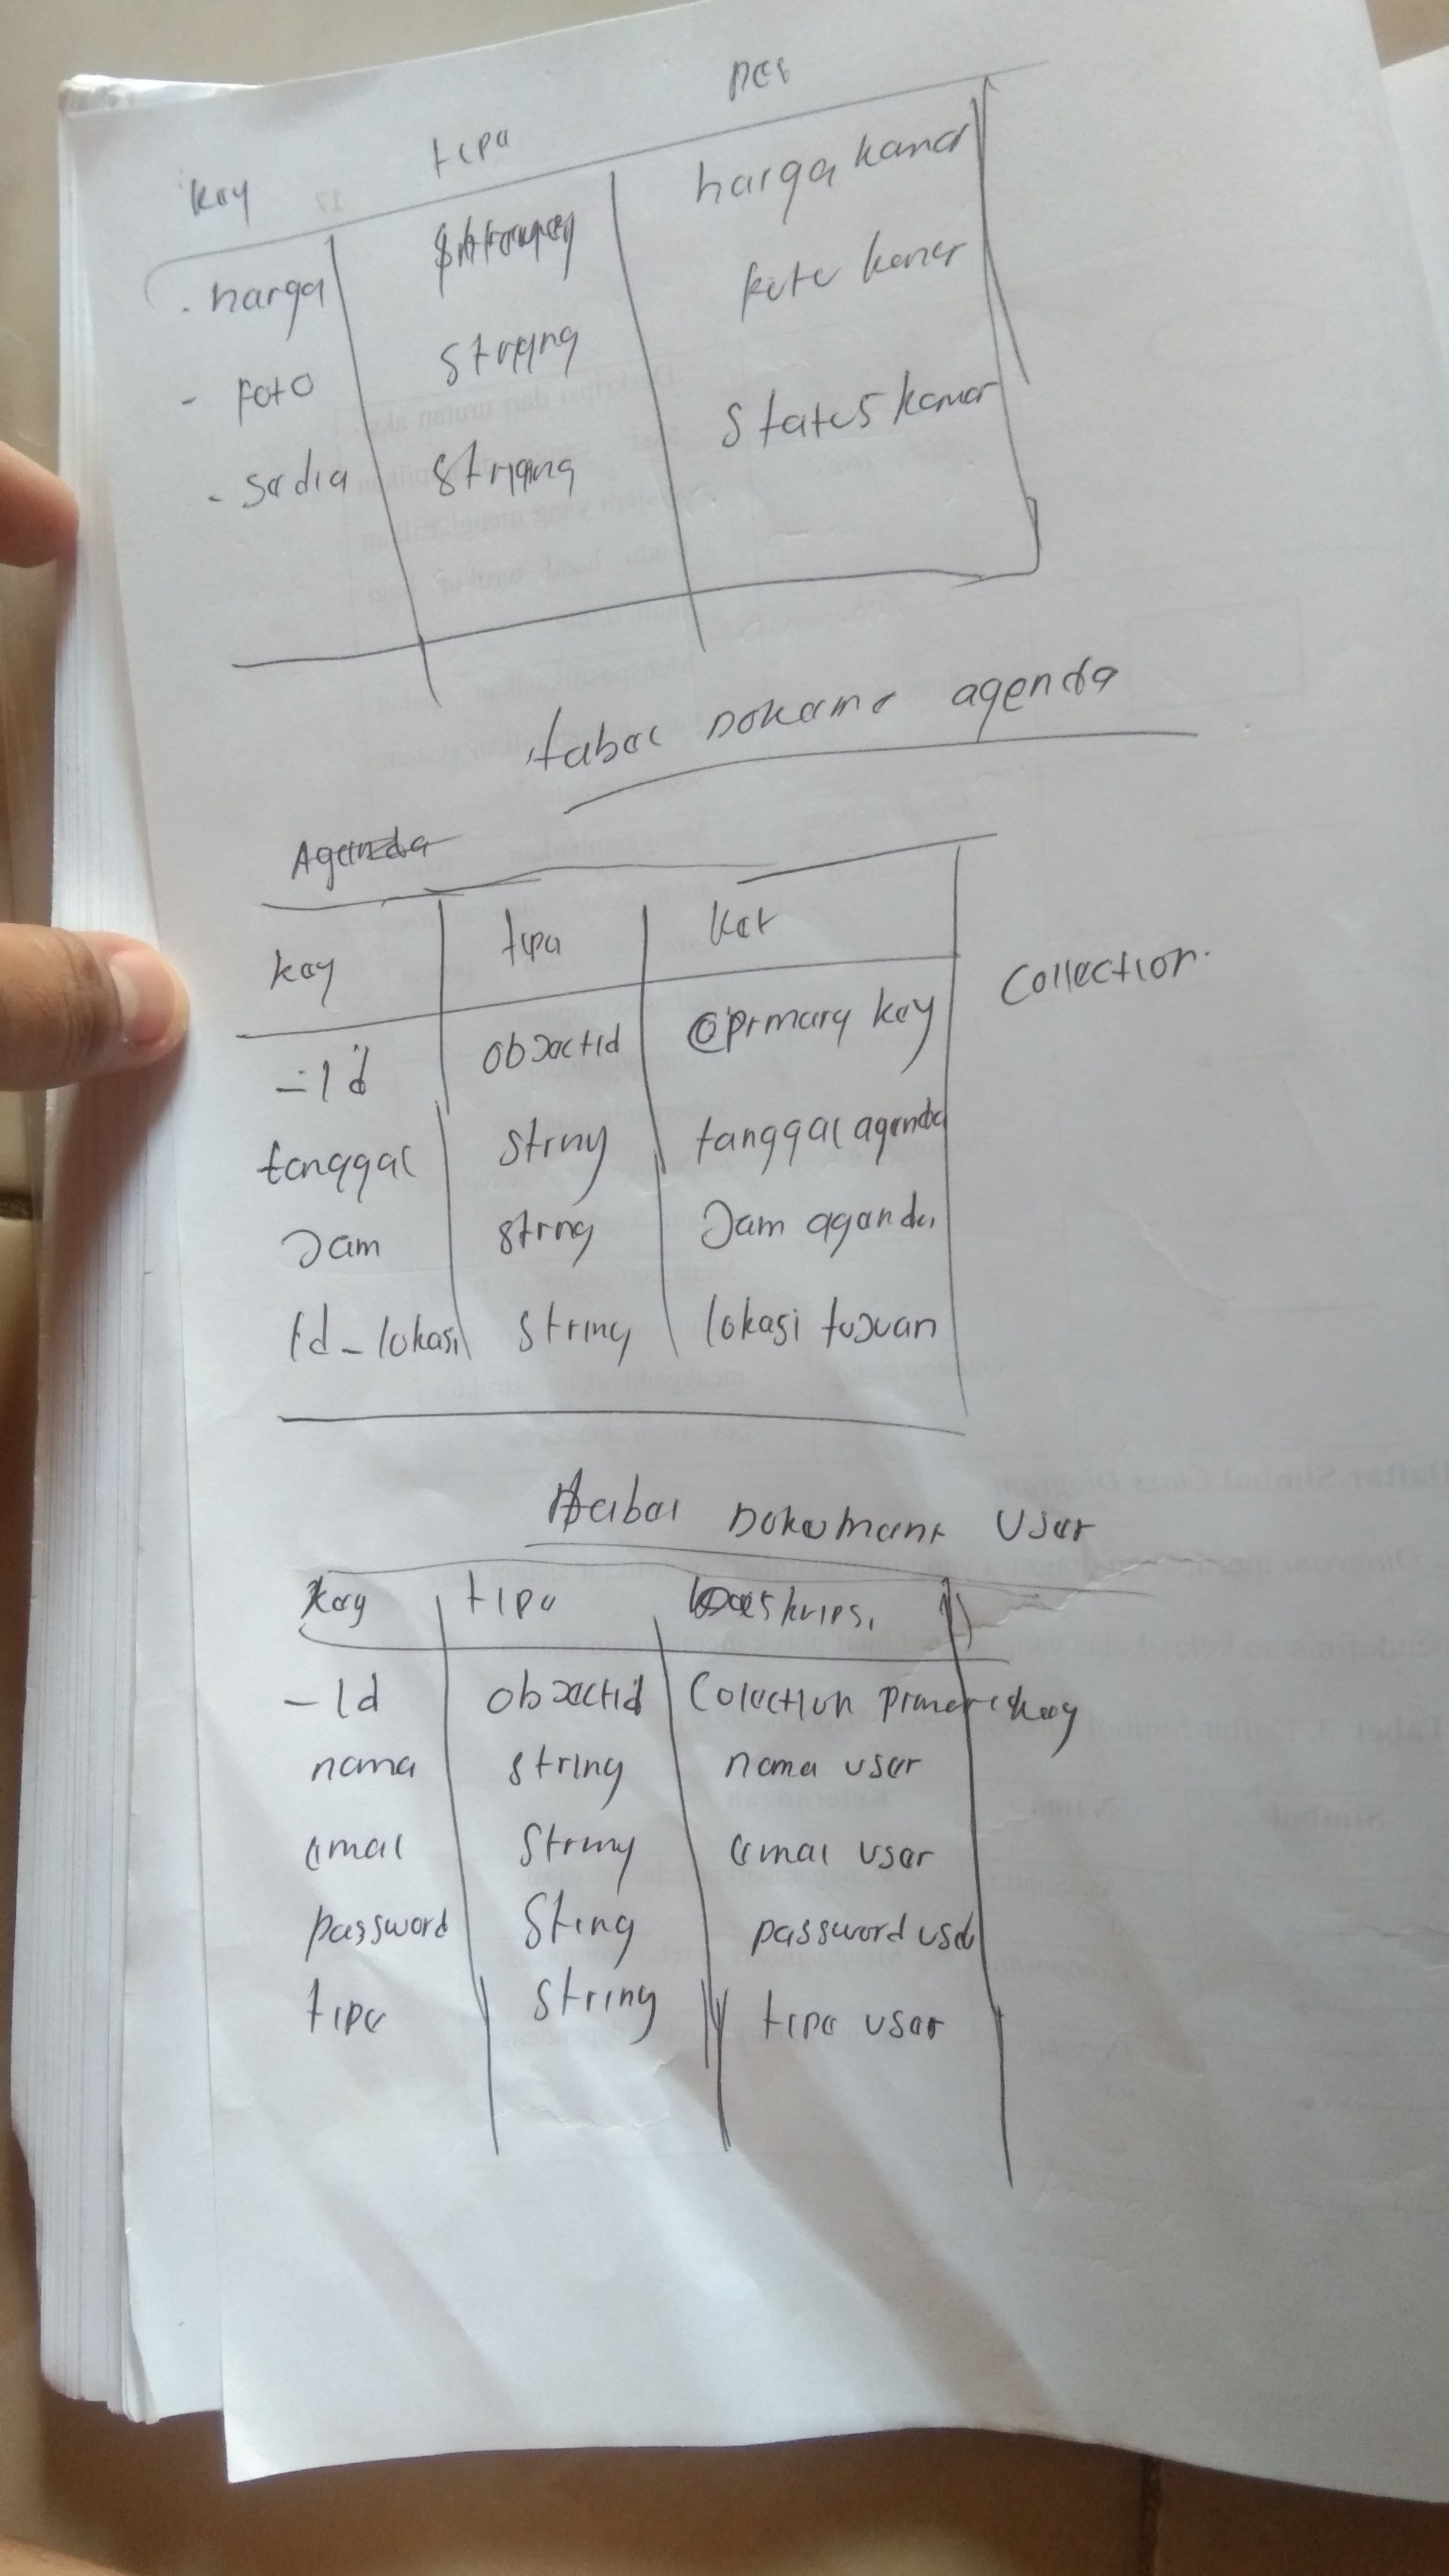 key tipe Des
- harga harga kamar
- foto string foto kamar
- sedia string status kamar
tabel Dokume agenda
Agenda
key tipe ket
_id objectid @primary key Collection.
tanggal string tanggal agenda
Jam string Jam agenda
id_lokasi string lokasi tujuan
tabel Dokument User
key tipe Deskripsi
_id objectid Colection primeri key
nama string nama user
email string email user
password Sting password user
tipe string tipe user